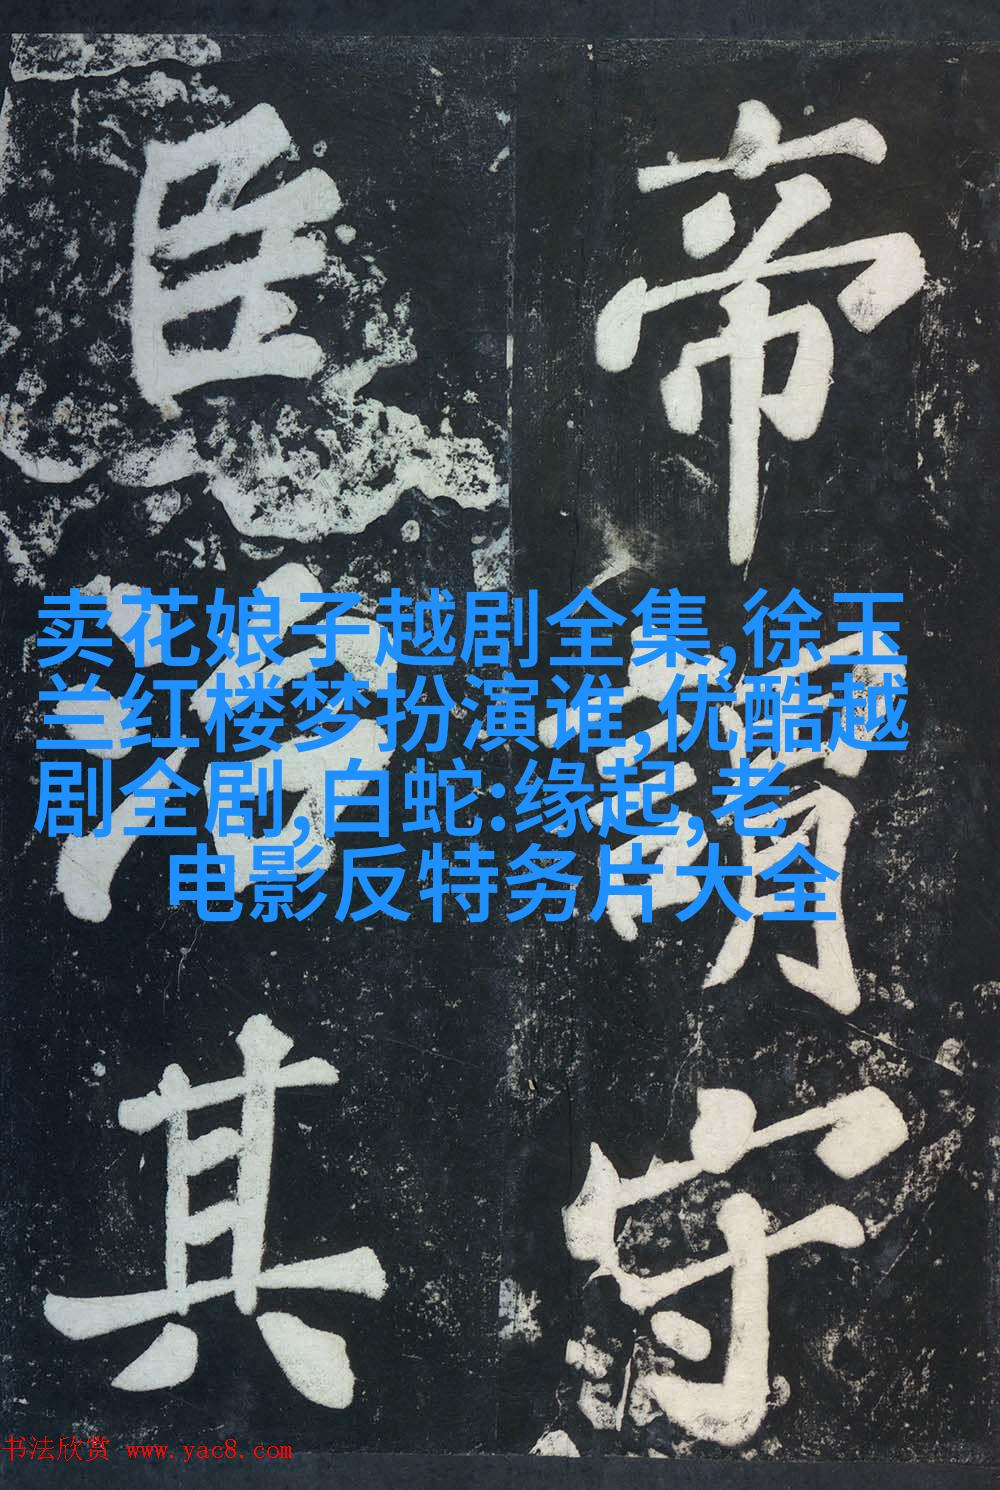 帝謂守
臣治其
卖花娘子越剧全集,徐玉
兰红楼梦扮演谁,优酷越
剧全剧,白蛇:缘起,老
电影反特务片大全
书法欣赏 www.yac8.com